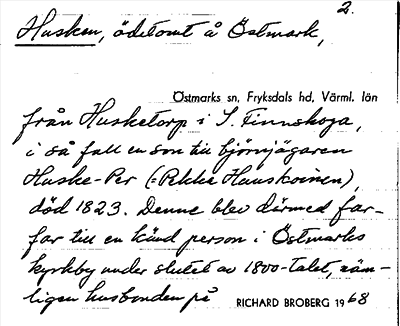 2.
Husken, ödetomt å Östmark,
Östmarks sn, Fryksdals hd, Värml. län
från Husketorp i S. Finnskoga,
i så fall en son till björnjägaren
Huske-Per (= Pekka Hauskoinen),
död 1823. Denne blev därmed far-
far till en känd person i Östmarks
kyrkby under slutet av 1800-talet, näm-
ligen husbonden på
RICHARD BROBERG 1968